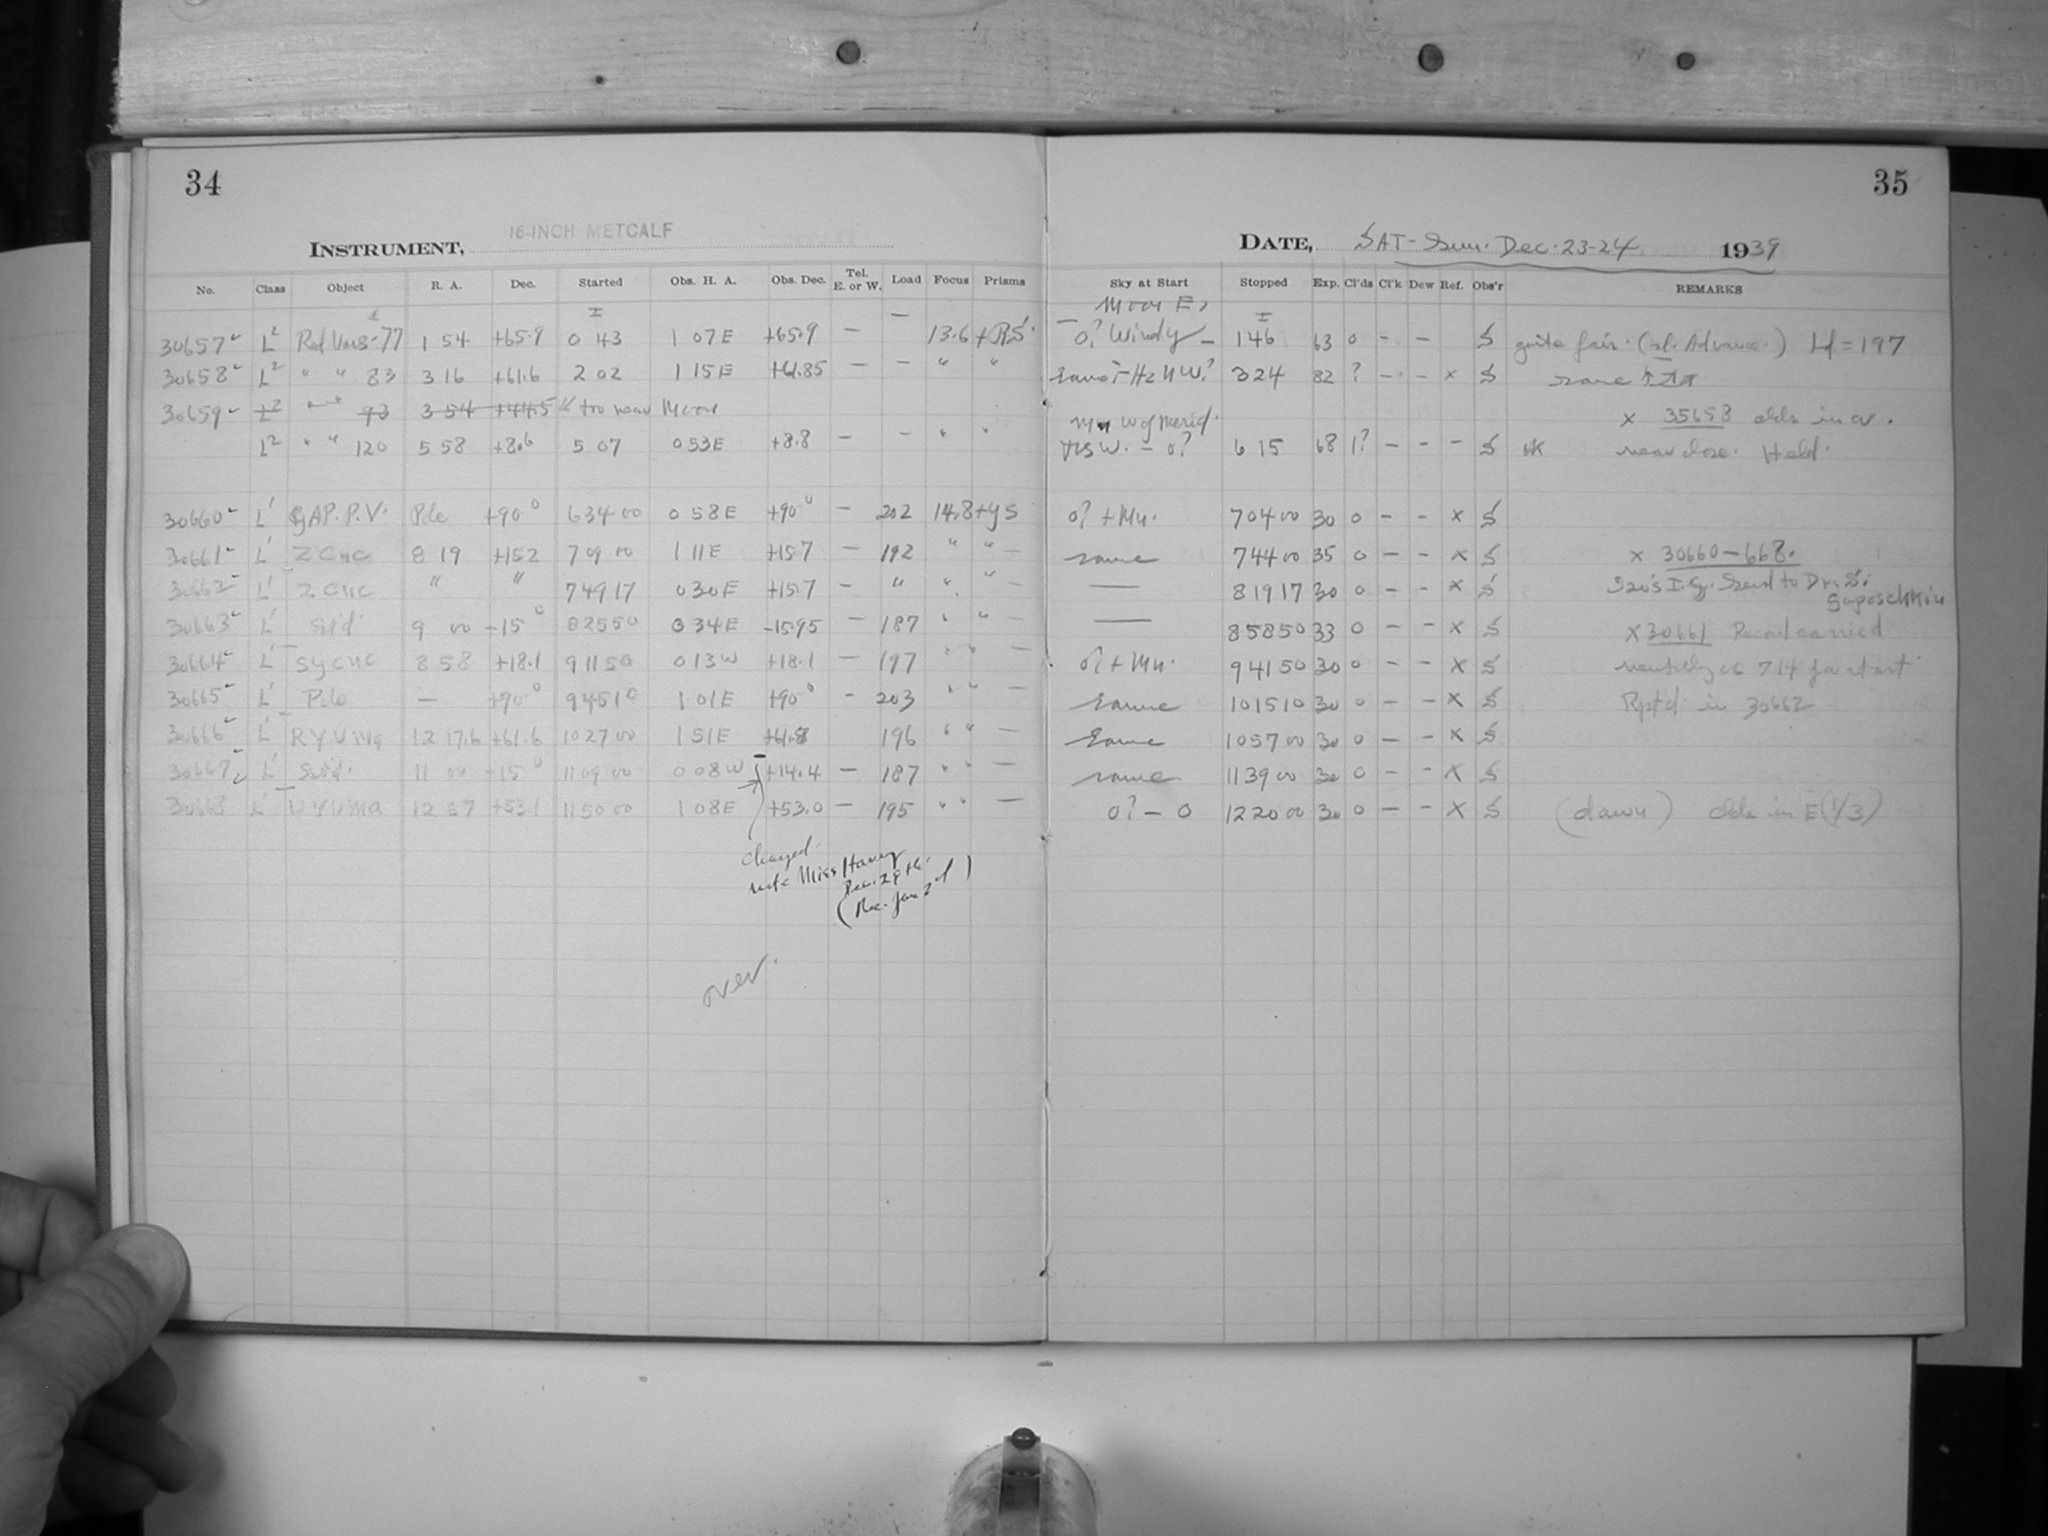 34
35
INSTRUMENT, 16-INCH METCALF
DATE, SAT-Sun. Dec. 23-24 1939
No. Class Object R. A. Dec. Started Obs. H. A. Obs. Dec. Tel. E. or W. Load Focus Prisms Sky at Start Stopped Exp. Cl'ds Cl'k Dew Ref. Obs'r REMARKS
Moon E,
30657 L2 Red Vars-77 1 54 +65.9 0 43 1 07E +65.9 — — 13.6 + RS o? Windy — 1 46 63 0 - - S quite fair. (sl. Advance.) Ld = 197
30658 L2 " " 83 3 16 +61.6 2 02 1 15E +61.85 — — " " 324 82 ? - - x S same
30659 L2 " " 93 3 54 +44.5 too near Moon x 35658 in
Mn W of Merid.
L2 " " 120 5 58 +8.6 5 07 0 53E +8.8 — — " " - o? 6 15 68 1? - - - S ok near close. Held.
30660 L' P.V. Pole +90° 6 34 00 0 58E +90° — 202 14.8 + ys o? + Mn. 7 04 00 30 0 - - x S
30661 L' Z Cnc 8 19 +15.2 7 09 00 1 11E +15.7 — 192 " " — same 7 44 00 35 0 - - x S x 30660-668.
30662 L' Z Cnc " " 7 49 17 0 30E +15.7 — " " " — — 8 19 17 30 0 - - x S Send to Dr. S.
Gaposchkin
30663 L' Std. 9 00 -15° 8 25 50 0 34E -15.95 — 187 " " — — 8 58 50 33 0 - - x S x 30661 Record carried
30664 L' SY Cnc 8 58 +18.1 9 11 50 0 13W +18.1 — 197 " " — o? + Mn. 9 41 50 30 0 - - x S mentally as 714 for start
30665 L' Pole — +90° 9 45 10 1 01E +90° - 203 " " — same 10 15 10 30 0 - - x S Rpt'd in 30662
30666 L' RY UMa 12 17.6 +61.6 10 27 00 1 51E +61.8 196 " " — same 10 57 00 30 0 - - x S
30667 L' Std. 11 00 -15° 11 09 00 0 08W +14.4 — 187 " " — same 11 39 00 30 0 - - x S
30668 L' UY UMa 12 57 +53.1 11 50 00 1 08E +53.0 — 195 " " — o? - o 12 20 00 30 0 - - x S (dawn) in E (1/3)
changed.
note Miss Harvey
Dec. 29th.
(Rec. Jan 2d)
over.